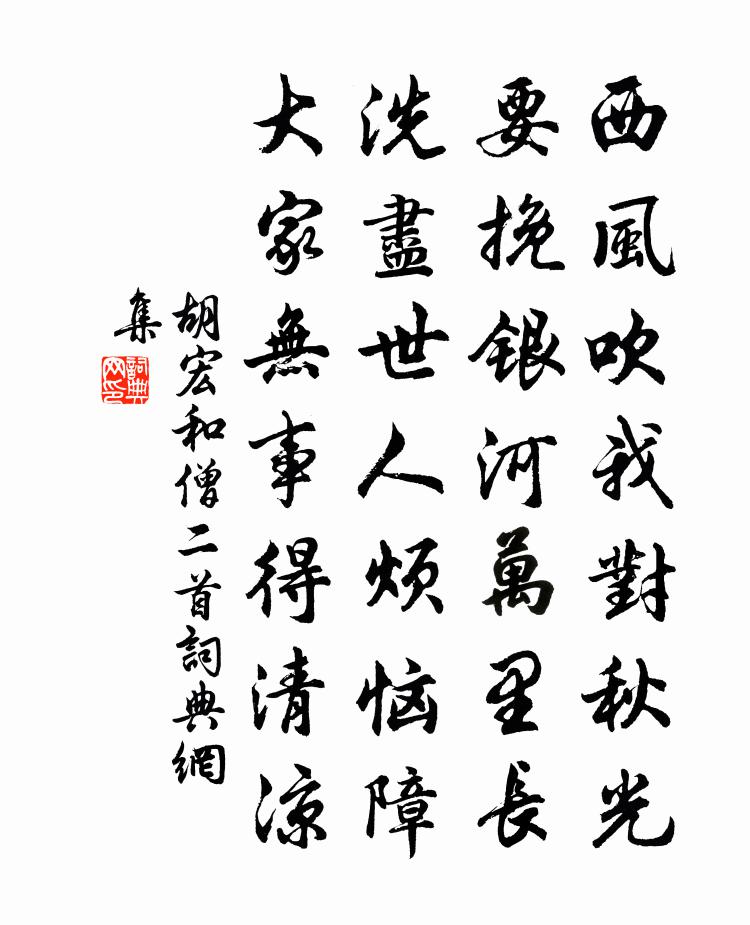 西風吹我對秋光
要挽銀河萬里長
洗盡世人煩惱障
大家無事得清涼
胡宏和僧二首詞典網
集
詞典
网印